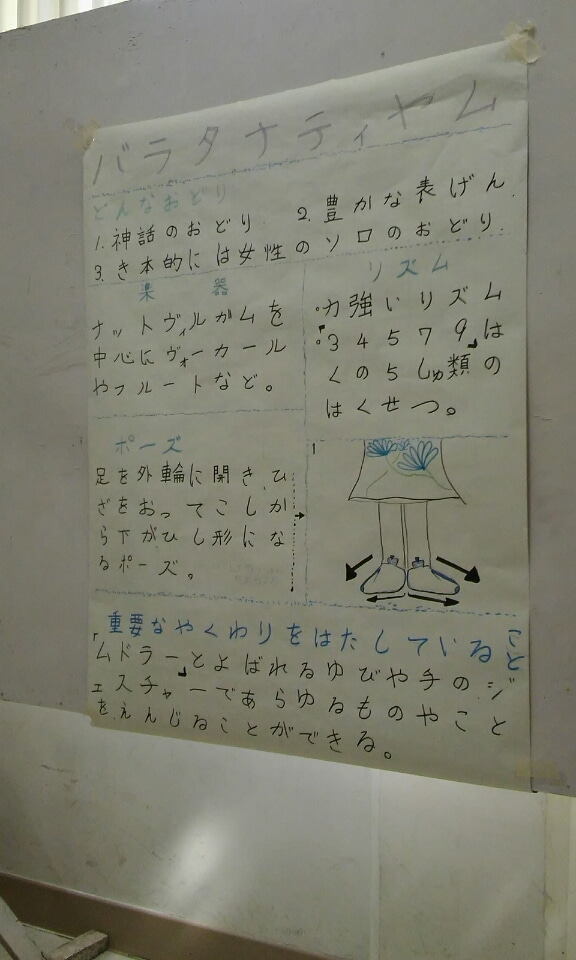 バラタナティヤム
どんなおどり
1. 神話のおどり 2. 豊かな表げん
3. き本的には女性のソロのおどり
楽器
ナットヴィルガムを
中心にヴォーカール
やフルートなど。
リズム
・力強いリズム
・「3 4 5 7 9」は
くの5しゅ類の
はくせつ。
ポーズ
足を外輪に開き、ひ
ざをおってこしか
ら下がひし形にな
るポーズ。
1
重要なやくわりをはたしていること
「ムドラー」とよばれるゆびや手のジ
ェスチャーであらゆるものやこと
を、えんじることができる。